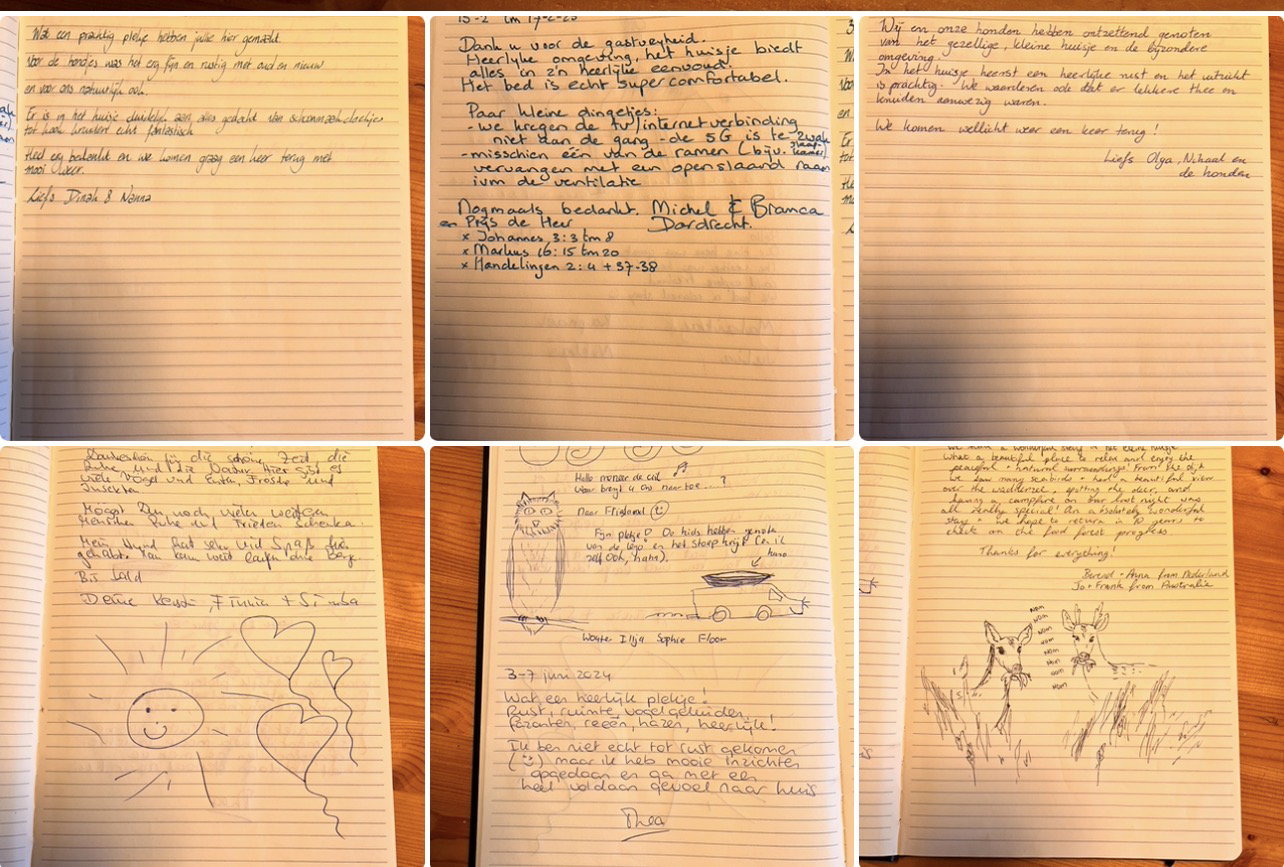 Wat een prachtig plekje hebben jullie hier gemaakt.
Voor de hondjes was het erg fijn en rustig met oud en nieuw
en voor ons natuurlijk ook.
Er is in het huisje duidelijk aan alles gedacht van schoonmaakdoekjes
tot hook kruiden! echt fantastisch
Heel erg bedankt en we komen graag een keer terug met
mooi weer.
Liefs Dinah & Nanna
15-2 tm 17-2-25
Dank u voor de gastvrijheid.
Heerlijke omgeving, het huisje biedt
alles in z'n heerlijke eenvoud.
Het bed is echt super comfortabel.
Paar kleine dingetjes:
- we kregen de tv/internetverbinding
niet aan de gang - de 5G is te zwak
- misschien één van de ramen (bijv. slaapkamer)
vervangen met een openslaand raam
ivm de ventilatie
Nogmaals bedankt. Michel & Branca
en Prijs de Heer Dordrecht.
x Johannes 3:3 tm 8
x Markus 16:15 tm 20
x Handelingen 2:4 + 37-38
Wij en onze honden hebben ontzettend genoten
van het gezellige, kleine huisje en de bijzondere
omgeving.
In het huisje heerst een heerlijke rust en het uitzicht
is prachtig. We waarderen ook dat er lekkere thee en
kruiden aanwezig waren.
We komen wellicht weer een keer terug!
Liefs Olga, Nihaal en
de honden
Dankeschön für die schöne Zeit die
Ruhe und die Hier gibt es
viele Vögel und Enten, Frösche und
Insekten
Möget Ihr noch vielen weiteren
Menschen Ruhe und Frieden schenken.
Mein Hund hat sehr viel Spaß hier
gehabt. Man kann weit laufen
Bis bald
Deine Kerstin, Finnia + Simba
Hallo meneer de uil
waar brengt u ons naar toe...?
Naar Flierland
Fijn plekje! De kids hebben genoten
van de lego en het stoepkrijt (en ik
zelf ook, haha).
kano
Wouter Illja Sophie Floor
3-7 juni 2024
Wat een heerlijk plekje!
Rust, ruimte, vogelgeluiden,
fazanten, reeën, hazen, heerlijk!
Ik ben niet echt tot rust gekomen
maar ik heb mooie inzichten
opgedaan en ga met een
heel voldaan gevoel naar huis
Thea
What a beautiful place to relax and enjoy the
peaceful + natural surroundings! From the deck
we saw many seabirds + had a beautiful view
over the waddenzee, spotting the deer, and
having a campfire on our last night was
all really special! An absolutely wonderful
stay + we hope to return in 10 years to
check on the food forest progress.
Thanks for everything!
Berend + Anna from Nederland
Jo + Frank from Australia
Nom
Nom
Nom
Nom
Nom
Nom
Nom
Nom